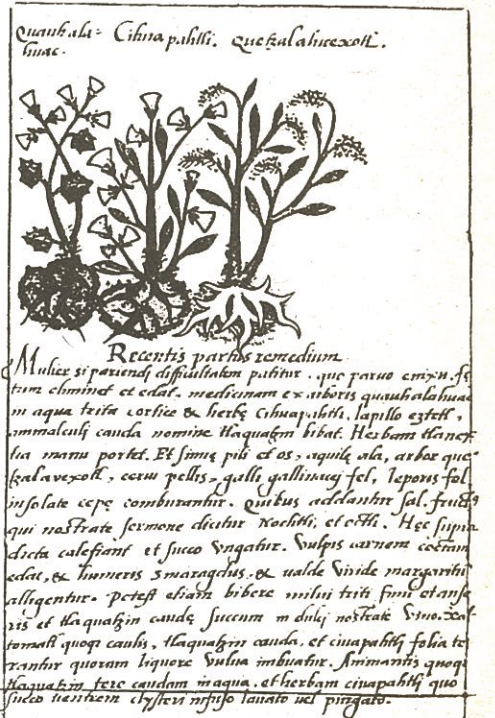 Quauhala= Cihuapahtli. Quetzalahuexotl.
huac.
Recentis partus remedium
Mulier si pariendi difficultatem patitur. quo paruo enixu. fę
tum eliminet et edat, medicinam ex arboris quauhalahuac
in aqua trita cortice & herbę Cihuapahtli, lapillo eztetl,
animalculi cauda nomine tlaquatzin bibat. Herbam tlanex
tia manu portet. Et simię pili et os, aquilę ala, arbor que
tzalavexotl, cerui pellis, galli gallinacej fel, leporis fel
insolate cepę comburantur. Quibus addantur sal, fructus
qui nostrate sermone dicitur Nochtli, et octli. Hęc supra
dicta calefiant et succo vngatur. Vulpis carnem coctam
edat, & humeris smaragdus, & ualde viride margaritum
alligentur. Potest etiam bibere milui triti fimi et anse
ris et tlaquatzin caudę succum in dulci nostrate vino. xal
tomatl quoq; caulis, tlaquatzin cauda, et ciuapahtli folia te
rantur quorum liquore vulua imbuatur. Animantis quoq;
tlaquatzin tere caudam in aqua, et herbam ciuapahtli quo
succo uentrem clysteri infuso lauato vel purgato.